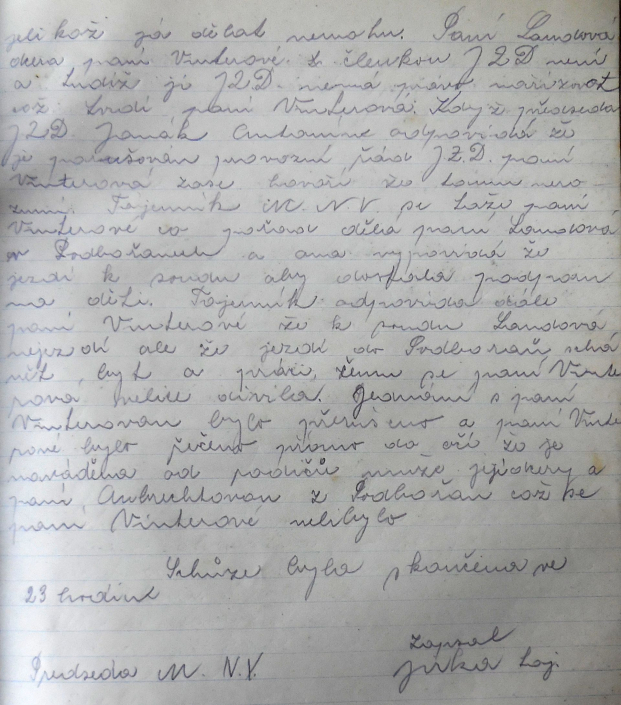 jelikož já dělat nemohu. Paní Landová
dcera paní Vinterové. t. členkou JZD není
a tudíž jí JZD. nemá právo nařizovat
což tvrdí paní Vinterová. Když předseda
JZD. Janák Antonín odpovídá že
je porušován provozní řád JZD. paní
Vinterová zase hovoří že tomu nero-
zumí. Tajemník M. N.V. se táže paní
Vinterové co pořád dělá paní Landová
v Podbořanech a ona vypovídá že
jezdí k soudu aby dostala podporu
na děti. Tajemník odpovídá dále
paní Vinterové že k soudu Landová
nejezdí ale že jezdí do Podbořan, shá
nět byt a práci, čemu se paní Vinte
rová velice divila. Jednání s paní
Vinterovou bylo přerušeno a paní Vinte
rové bylo řečeno přímo do očí že je
naváděna od rodičů muže její dcery a
paní Aubrechtovou z Podbořan což se
paní Vinterové nelíbylo
Schůze byla skončena ve
23 hodin
Zapsal
Předseda M. N.V.